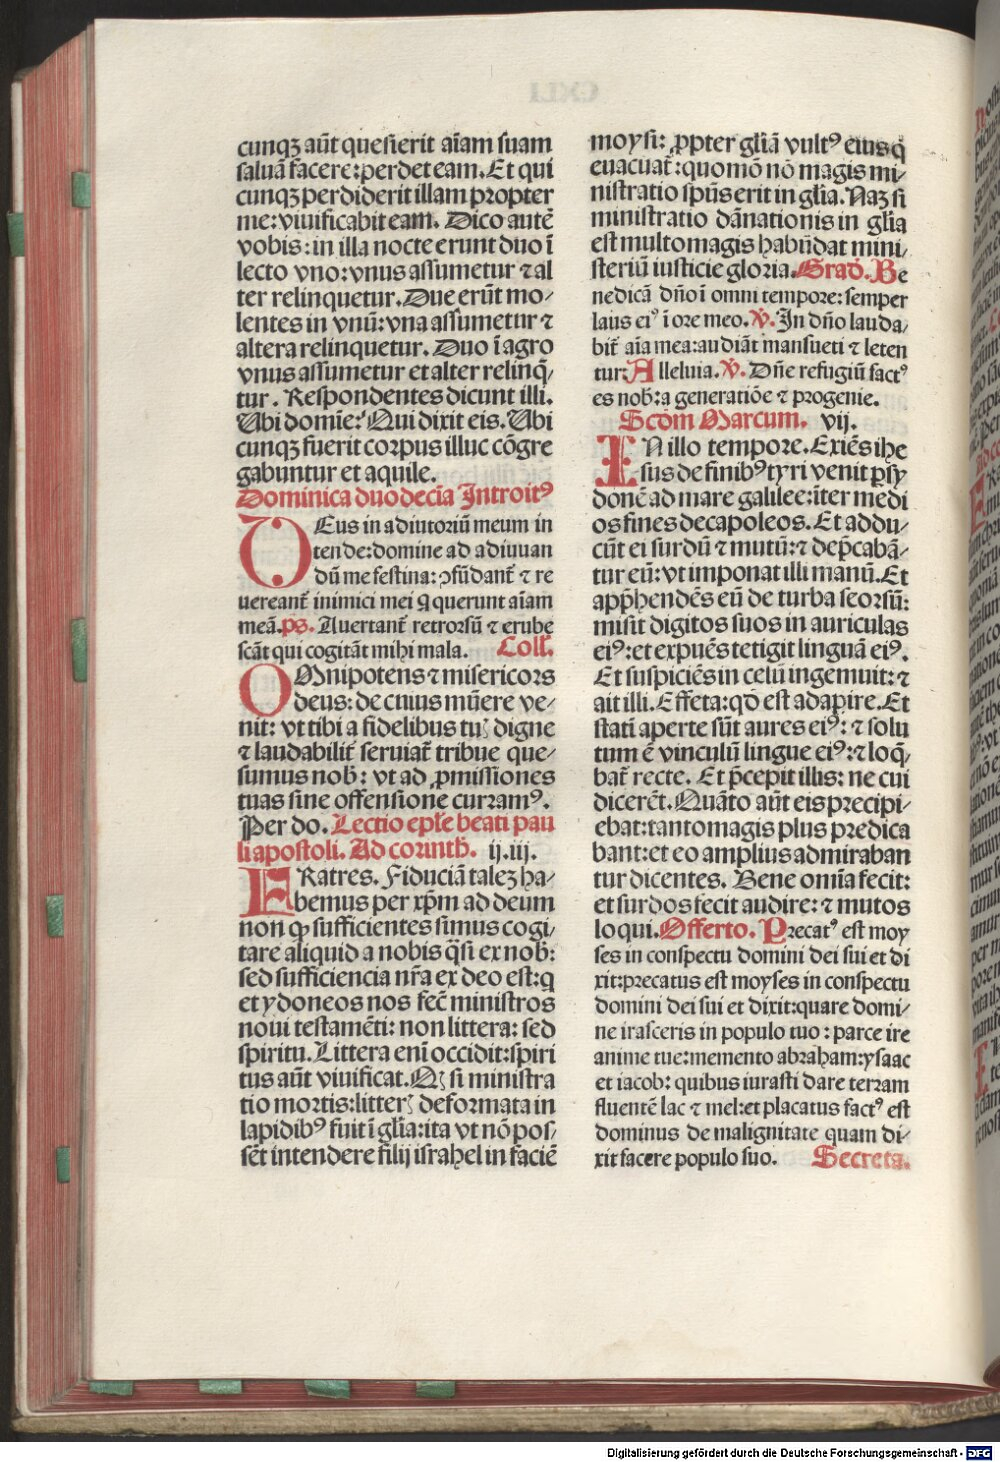 cunqꝫ aūt quesierit aīam suam
saluā facere: perdet eam. Et qui
cunqꝫ perdiderit illam propter
me: viuificabit eam. Dico autē
vobis: in illa nocte erunt duo ī
lecto vno: vnus assumetur ⁊ al
ter relinquetur. Due erūt mo⸗
lentes in vnū: vna assumetur ⁊
altera relinquetur. Duo ī agro
vnus assumetur et alter relinq̄⸗
tur. Respondentes dicunt illi.
Ubi domīe? Qui dixit eis. Ubi
cunqꝫ fuerit corpus illuc cōgre
gabuntur et aquile.
Dominica duodecīa Introitꝰ
DEus in adiutoriū meum in
tende: domine ad adiuuan
dū me festina: ↄfūdant̄ ⁊ re
uereant̄ inimici mei q̄ querunt aīam
meā. ps. Auertant̄ retrorsū ⁊ erube
scāt qui cogitāt mihi mala. Coll̄.
OMnipotens ⁊ misericors
deus: de cuius mūere ve⸗
nit: vt tibi a fidelibus tuꝭ digne
⁊ laudabilit̄ seruiat̄ tribue que⸗
sumus nob̄: vt ad ꝓmissiones
tuas sine offensione curramꝰ.
Per do. Lectio ep̄le beati pau
li apostoli. Ad corinth̄. ij. iij.
FRatres. Fiduciā talē ha⸗
bemus per xp̄m ad deum
non ꝙ sufficientes simus cogi⸗
tare aliquid a nobis q̄si ex nob̄:
sed sufficiencia nr̄a ex deo est: q
et ydoneos nos fec̄ ministros
noui testamēti: non littera: sed
spiritu. Littera enī occidit: spiri
tus aūt viuificat. Qꝭ si ministra
tio mortis: litterꝭ deformata in
lapidibꝰ fuit ī glīa: ita vt nō pos⸗
sēt intendere filij israhel in faciē
moysi: ꝓpter glīā vultꝰ eius q̄
euacuat̄: quomō nō magis mi⸗
nistratio spūs erit in glīa. Naꝫ si
ministratio dānationis in glīa
est multomagis habūdat mini⸗
steriū iusticie gloria. Grad̄. Be
nedicā dn̄o ī omni tempore: semper
laus eiꝰ ī ore meo. V̄. In dn̄o lauda⸗
bit̄ aīa mea: audiāt mansueti ⁊ leten
tur: Alleluia. V̄. Dn̄e refugiū factꝰ
es nob̄: a generatiōe ⁊ progenie.
Scdm̄ Marcum. vij.
IN illo tempore. Exiēs ihe
sus de finibꝰ tyri venit ꝑ sy
donē ad mare galilee: īter medi
os fines decapoleos. Et addu⸗
cūt ei surdū ⁊ mutū: ⁊ dep̄cabā⸗
tur eū: vt imponat illi manū. Et
app̄hendēs eū de turba seorsū:
misit digitos suos in auriculas
eiꝰ: et expuēs tetigit linguā eiꝰ.
Et suspiciēs in celū ingemuit: ⁊
ait illi. Effeta: qd̄ est adapire. Et
stati aperte sūt aures eiꝰ: ⁊ solu
tum ē vinculū lingue eiꝰ: ⁊ loq̄⸗
bat̄ recte. Et p̄cepit illis: ne cui
dicerēt. Quāto aūt eis precipi⸗
ebat: tanto magis plus predica
bant: et eo amplius admiraban
tur dicentes. Bene omīa fecit:
et surdos fecit audire: ⁊ mutos
loqui. Offerto. Precatꝰ est moy
ses in conspectu domini dei sui et di
xit: precatus est moyses in conspectu
domini dei sui et dixit: quare domi⸗
ne irasceris in populo tuo: parce ire
anime tue: memento abraham: ysaac
et iacob: quibus iurasti dare terram
fluentē lac ⁊ mel: et placatus factꝰ est
dominus de malignitate quam di⸗
xit facere populo suo. Secreta.
Digitalisierung gefördert durch die Deutsche Forschungsgemeinschaft - DFG